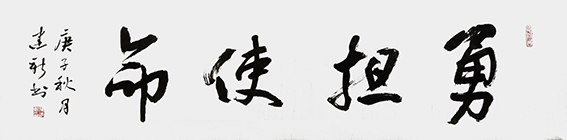 勇担使命
庚子秋月
建新书